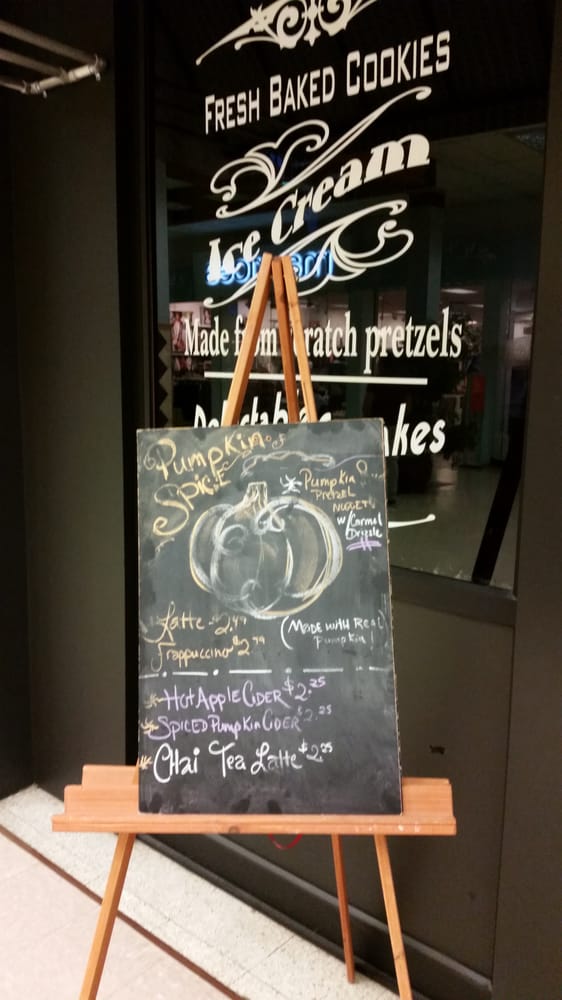 FRESH BAKED COOKIES
Ice Cream
Made from Scratch pretzels
akes
Pumpkin
Spice
Pumpkin
Pretzel
Nuggets
w/ Carmel
Drizzle
Latte - $2.49
Frappuccino $2.99
(Made with Real
Pumpkin)
Hot Apple Cider $2.25
Spiced Pumpkin Cider $2.25
Chai Tea Latte $2.25